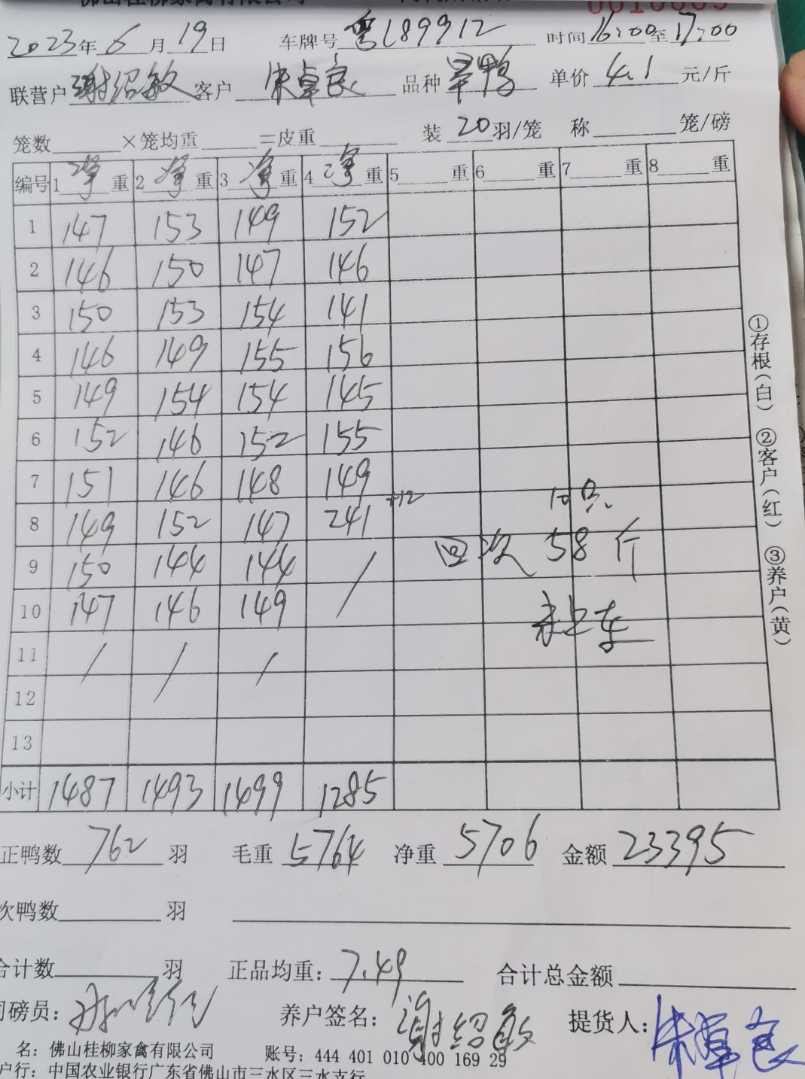 佛山桂柳家禽有限公司
2023年6月19日 车牌号 粤L89912 时间16:00至17:00
联营户 谢绍敏 客户 朱卓良 品种 旱鸭 单价 4.1 元/斤
笼数 ×笼均重 =皮重 装 20 羽/笼 称 笼/磅
编号 1 净 重 2 净 重 3 净 重 4 净 重 5 重 6 重 7 重 8 重
1 147 153 149 152
2 146 150 147 146
3 150 153 154 141
4 146 149 155 156
5 149 154 154 145
6 152 146 152 155
7 151 146 148 149
8 149 152 147 241 +12 10只
9 150 144 144 / 回次 58斤
10 147 146 149 未上车
11 / / /
12
13
小计 1487 1493 1499 1285
①存根(白) ②客户(红) ③养户(黄)
正鸭数 762 羽 毛重 5764 净重 5706 金额 23395
次鸭数 羽
合计数 羽 正品均重: 7.49 合计总金额
司磅员: 养户签名: 谢绍敏 提货人: 朱卓良
名: 佛山桂柳家禽有限公司 账号: 444 401 010 400 169 29
户行: 中国农业银行广东省佛山市三水区三水支行